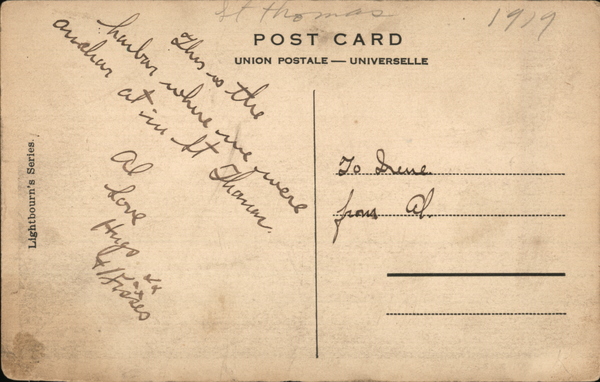 St Thomas 1919
POST CARD
UNION POSTALE — UNIVERSELLE
This is the
harbor where we were
anchor at in St Thomas.
Al
Love
Hugs xx
+ Kisses xxx
To Irene
from Al.
Lightbourn's Series.